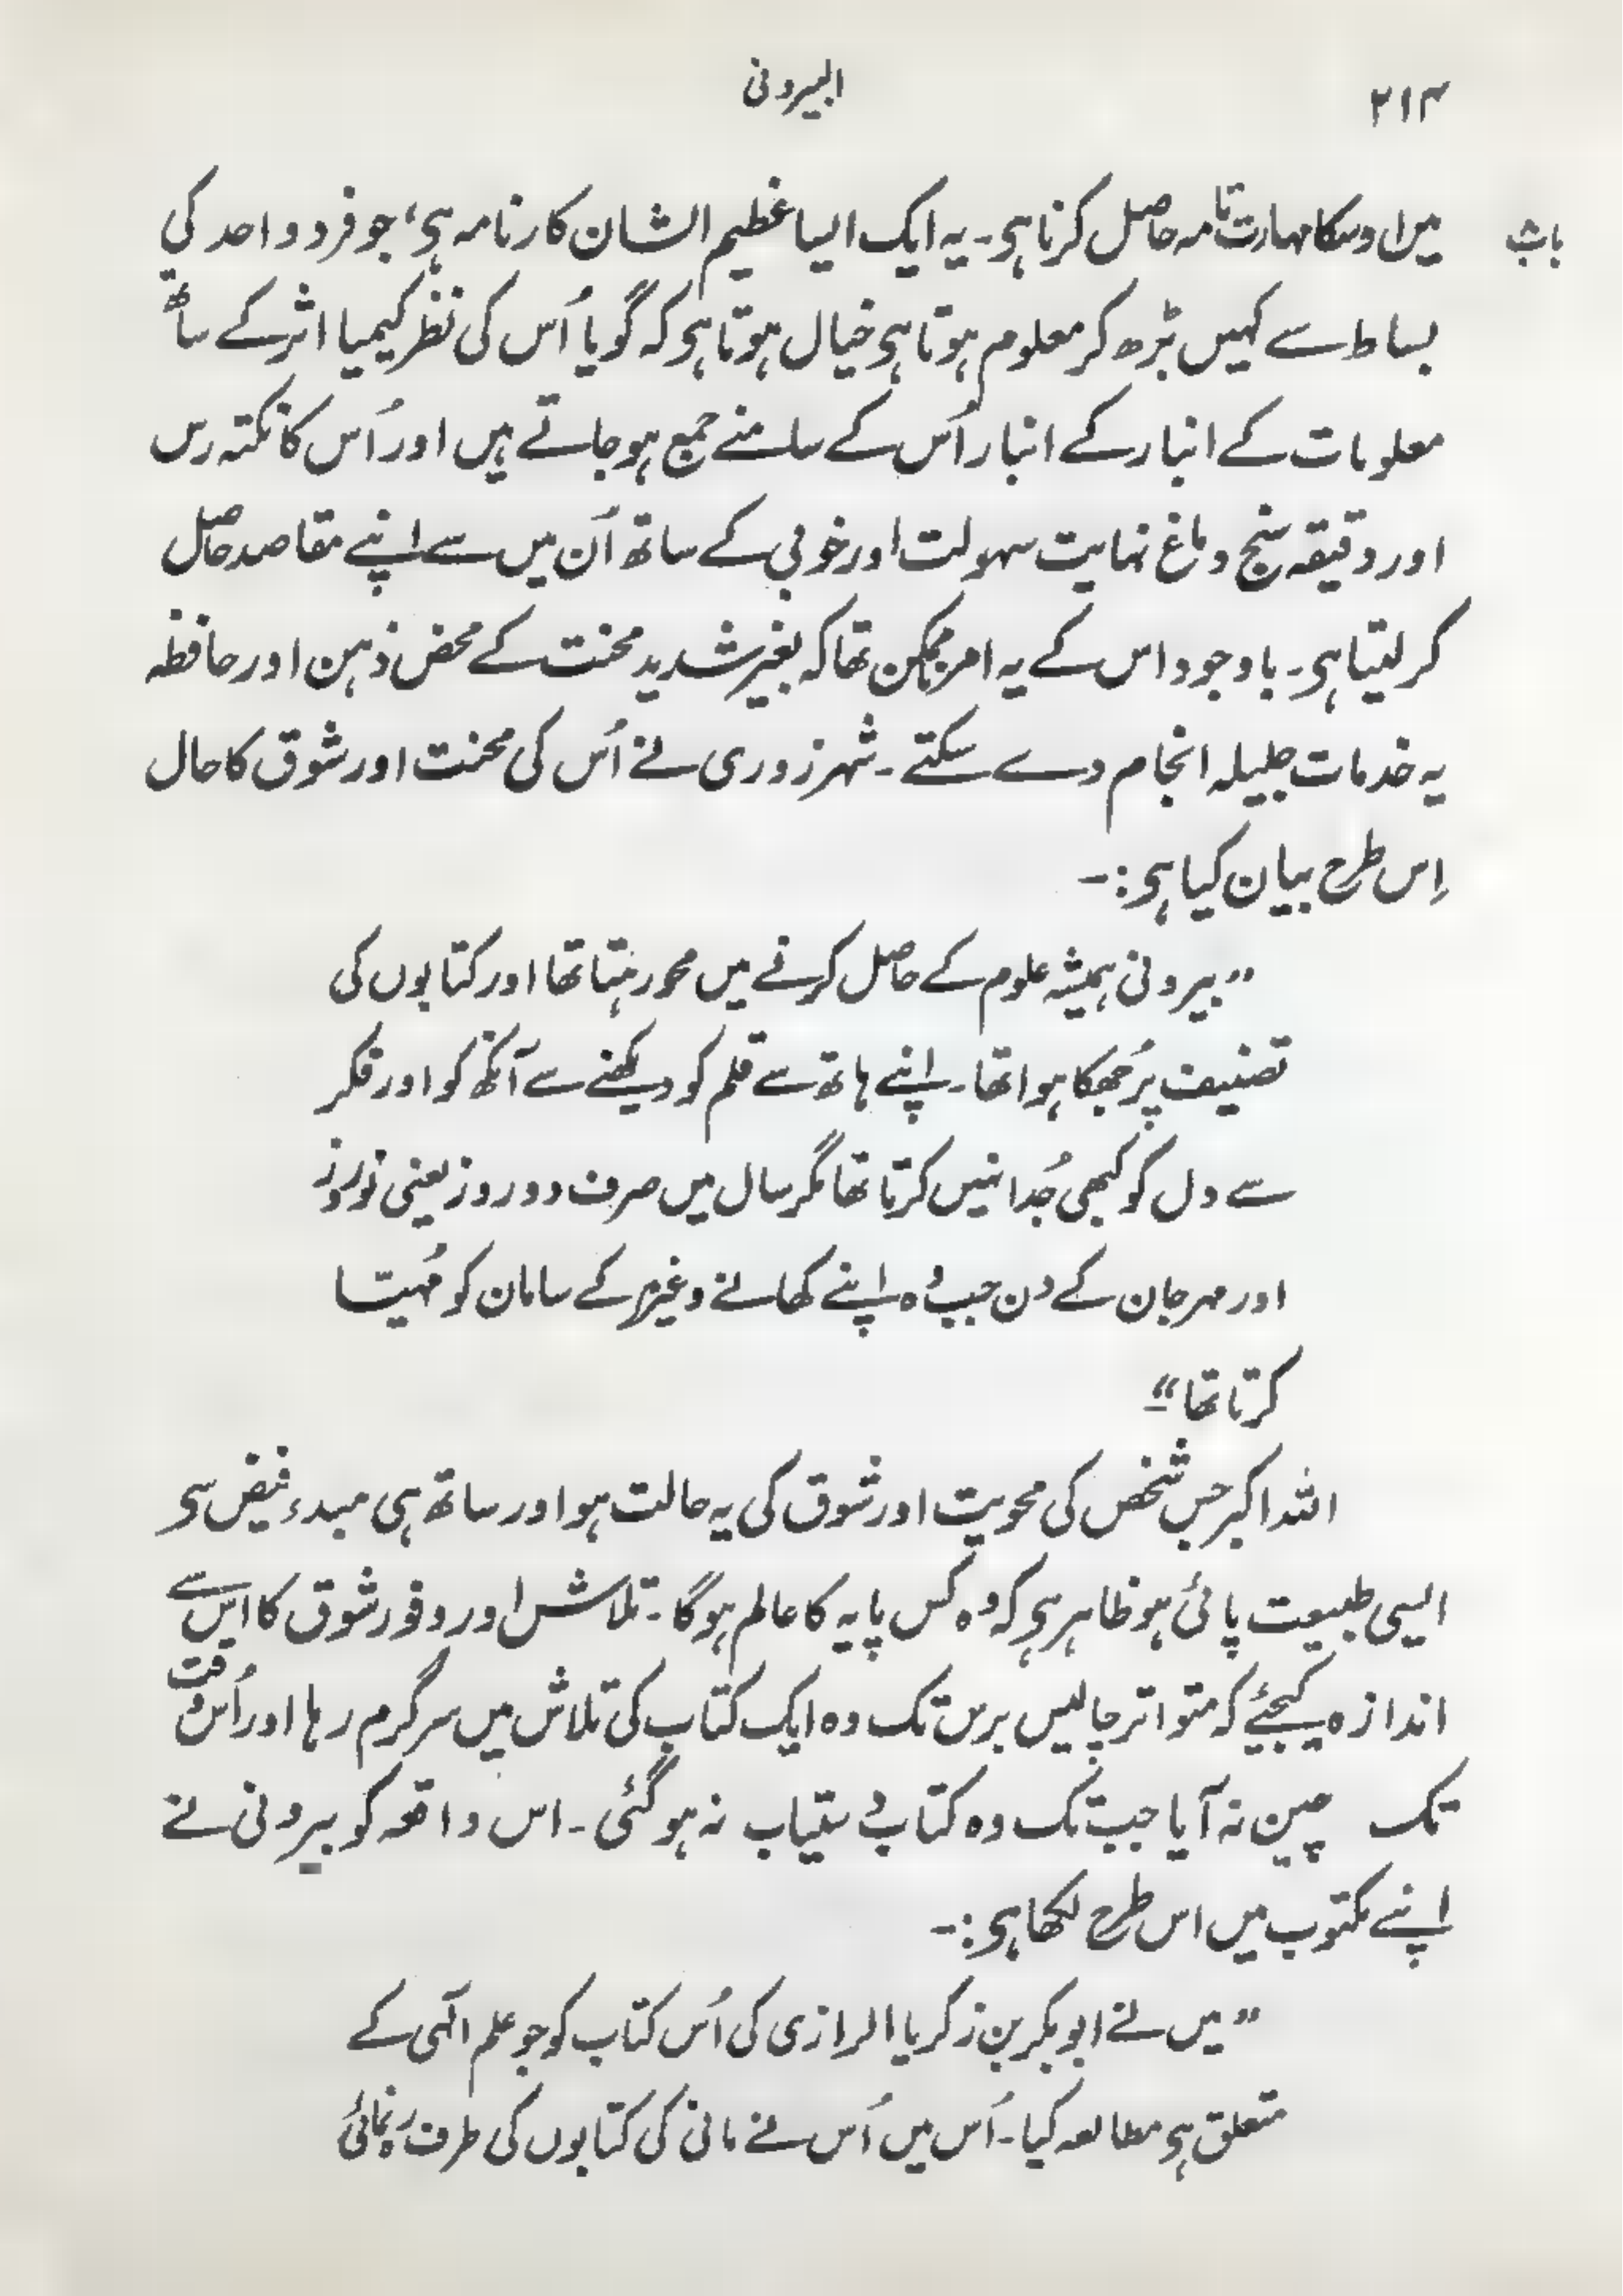 ۲۱۴
البیرونی
باب
میں اوسکا مہارت تامہ حاصل کرنا ہی۔ یہ ایک ایسا عظیم الشان کارنامہ ہی، جو فرد واحد کی
بساط سے کہیں بڑھ کر معلوم ہوتا ہی خیال ہوتا ہی کہ گویا اُس کی نظر کیمیا اثر کے ساتھ
معلومات کے انبار کے انبار اُس کے سامنے جمع ہوجاتے ہیں اور اُس کا نکتہ رس
اور دقیقہ سنج دماغ نہایت سہولت اور خوبی کے ساتھ اُن میں سے اپنے مقاصد حاصل
کرلیتا ہی۔ باوجود اس کے یہ امر ناممکن تھا کہ بغیر شدید محنت کے محض ذہن اور حافظہ
یہ خدمات جلیلہ انجام دے سکتے۔ شہرزوری نے اُس کی محنت اور شوق کا حال
اِس طرح بیان کیا ہی:-
”بیرونی ہمیشہ علوم کے حاصل کرنے میں محو رہتا تھا اور کتابوں کی
تصنیف پر جُھکا ہوا تھا۔ اپنے ہاتھ سے قلم کو دیکھنے سے آنکھ کو اور فکر
سے دل کو کبھی جُدا نہیں کرتا تھا مگر سال میں صرف دو روز یعنی نوروز
اور مہرجان کے دن جب وُہ اپنے کھانے وغیرہ کے سامان کو مُہیّا
کرتا تھا“
اللہ اکبر جس شخص کی محویت اور شوق کی یہ حالت ہو اور ساتھ ہی مبدء فیض سی
ایسی طبیعت پائی ہو ظاہر ہی کہ وہ کس پایہ کا عالم ہوگا۔ تلاش اور وفور شوق کا اس سے
اندازہ کیجئے کہ متواتر چالیس برس تک وہ ایک کتاب کی تلاش میں سرگرم رہا اور اُس وقت
تک چین نہ آیا جب تک وہ کتاب دستیاب نہ ہوگئی۔ اس واقعہ کو بیرونی نے
اپنے مکتوب میں اس طرح لکھا ہی:-
”میں نے ابوبکر بن زکریا الرازی کی اُس کتاب کو جو علم الٰہی کے
متعلق ہی مطالعہ کیا۔ اُس میں اُس نے مانی کی کتابوں کی طرف رہنمائی